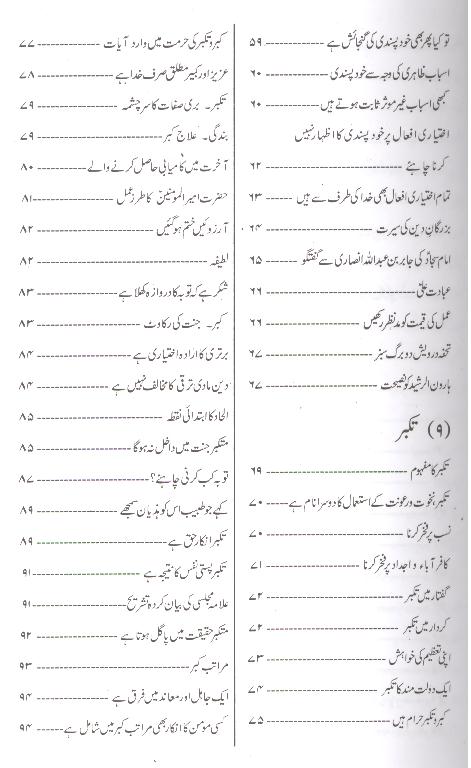 تو کیا پھر بھی خود پسندی کی گنجائش ہے ---------------- ۵۹
اسباب ظاہری کی وجہ سے خود پسندی ---------------- ۶۰
کبھی اسباب غیر موثر ثابت ہوتے ہیں ---------------- ۶۰
اختیاری افعال پر خود پسندی کا اظہار نہیں
کرنا چاہئے ---------------- ۶۲
تمام اختیاری افعال بھی خدا کی طرف سے ہیں ---------------- ۶۳
بزرگان دین کی سیرت ---------------- ۶۴
امام سجادؑ کی جابر بن عبداللہ انصاری سے گفتگو ---------------- ۶۵
عبادت علیؑ ---------------- ۶۶
عمل کی قیمت کو مدنظر رکھیں ---------------- ۶۶
تحفہ درویش دو برگ سبز ---------------- ۶۷
ہارون الرشید کو نصیحت ---------------- ۶۷
(۹) تکبر
تکبر کا مفہوم ---------------- ۶۹
تکبر، نخوت و رعونت کے استعمال کا دوسرا نام ہے ---------------- ۷۰
نسب پر فخر کرنا ---------------- ۷۰
کافر آباء و اجداد پر فخر کرنا ---------------- ۷۱
گفتار میں تکبر ---------------- ۷۲
کردار میں تکبر ---------------- ۷۲
اپنی تعظیم کی خواہش ---------------- ۷۳
ایک دولت مند کا تکبر ---------------- ۷۴
کبر و تکبر حرام ہیں ---------------- ۷۵
کبر و تکبر کی حرمت میں وارد آیات ---------------- ۷۷
عزیز اور کبیر مطلق صرف خدا ہے ---------------- ۷۸
تکبر۔ بری صفات کا سرچشمہ ---------------- ۷۹
بندگی۔ علاج کبر ---------------- ۷۹
آخرت میں کامیابی حاصل کرنے والے ---------------- ۸۰
حضرت امیر المومنینؑ کا طرز عمل ---------------- ۸۱
آرزوئیں ختم ہو گئیں ---------------- ۸۲
لطیفہ ---------------- ۸۲
شکر ہے کہ توبہ کا دروازہ کھلا ہے ---------------- ۸۳
کبر۔ جنت کی رکاوٹ ---------------- ۸۳
برتری کا ارادہ اختیاری ہے ---------------- ۸۴
دین مادی ترقی کا مخالف نہیں ہے ---------------- ۸۴
الحاد کا ابتدائی نقطہ ---------------- ۸۵
متکبر جنت میں داخل نہ ہوگا ---------------- ۸۵
توبہ کب کرنی چاہئے؟ ---------------- ۸۷
کہے جو طبیب اس کو ہذیان سمجھے ---------------- ۸۹
تکبر انکار حق ہے ---------------- ۸۹
تکبر پستی نفس کا نتیجہ ہے ---------------- ۹۱
علامہ مجلسی کی بیان کردہ تشریح ---------------- ۹۱
متکبر حقیقت میں پاگل ہوتا ہے ---------------- ۹۲
مراتب کبر ---------------- ۹۳
ایک جاہل اور معاند میں فرق ہے ---------------- ۹۴
کسی مومن کا انکار بھی مراتب کبر میں شامل ہے ---------------- ۹۴